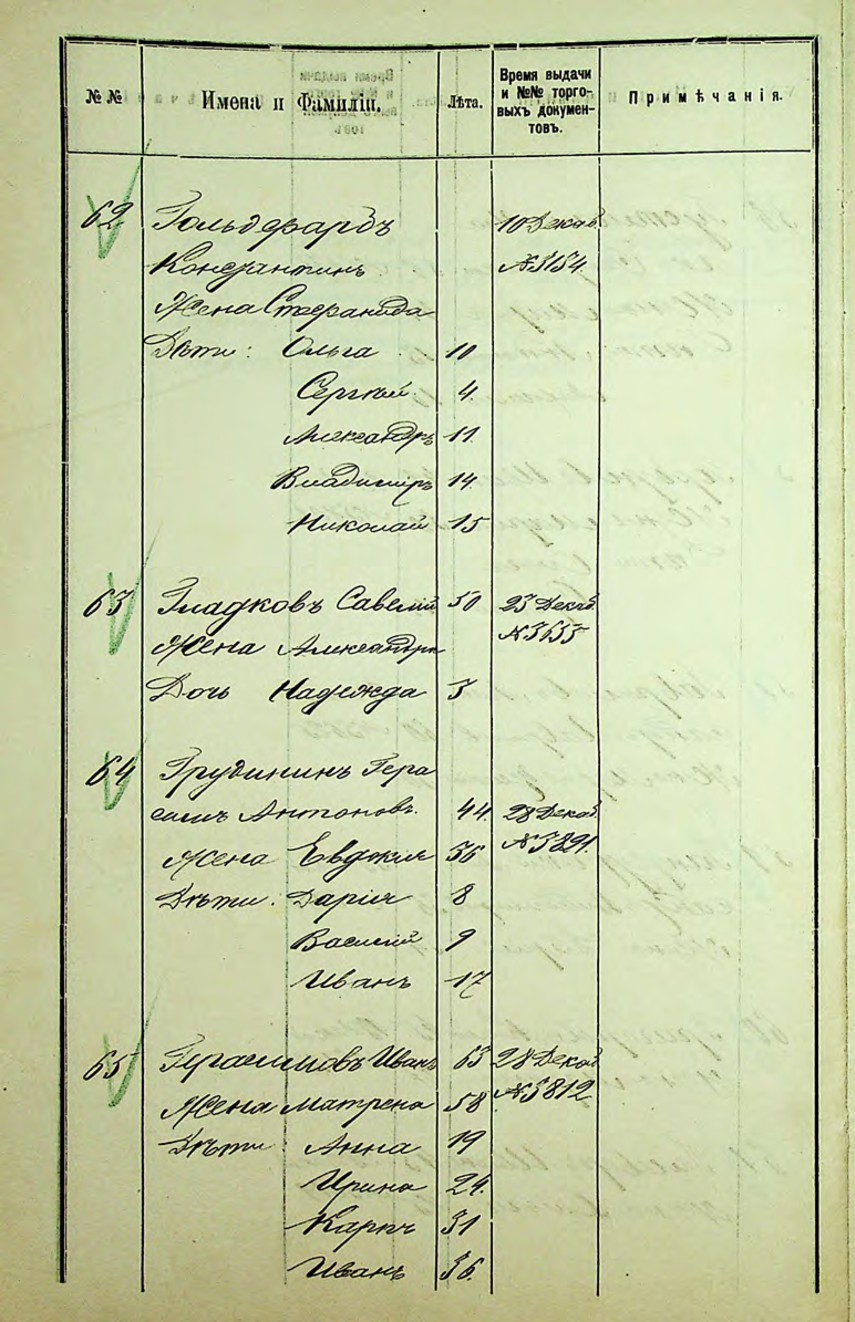 № №
Имена и Фамиліи.
Лѣта.
Время выдачи
и №№ торго-
выхъ докумен-
товъ.
Примѣчанія.
62 Гольдфарбъ 10 Декаб.
Константинъ № 3154
Жена Стефанида
Дѣти: Ольга 10
Сергѣй 4
Александръ 11
Владимиръ 14
Николай 15
63 Гладковъ Савелій 50 23 Декаб.
Жена Александра № 3653
Дочь Надежда 3
64 Грудининъ Гера
симъ Антоновъ. 44 28 Декаб.
Жена Евдокия 36 № 3891.
Дѣти: Дарія 8
Василій 9
Иванъ 17
65 Герасимовъ Иванъ 63 28 Декаб
Жена Матрена 58 № 3812
Дѣти: Анна 19
Ирина 24.
Карпъ 31
Иванъ 36.